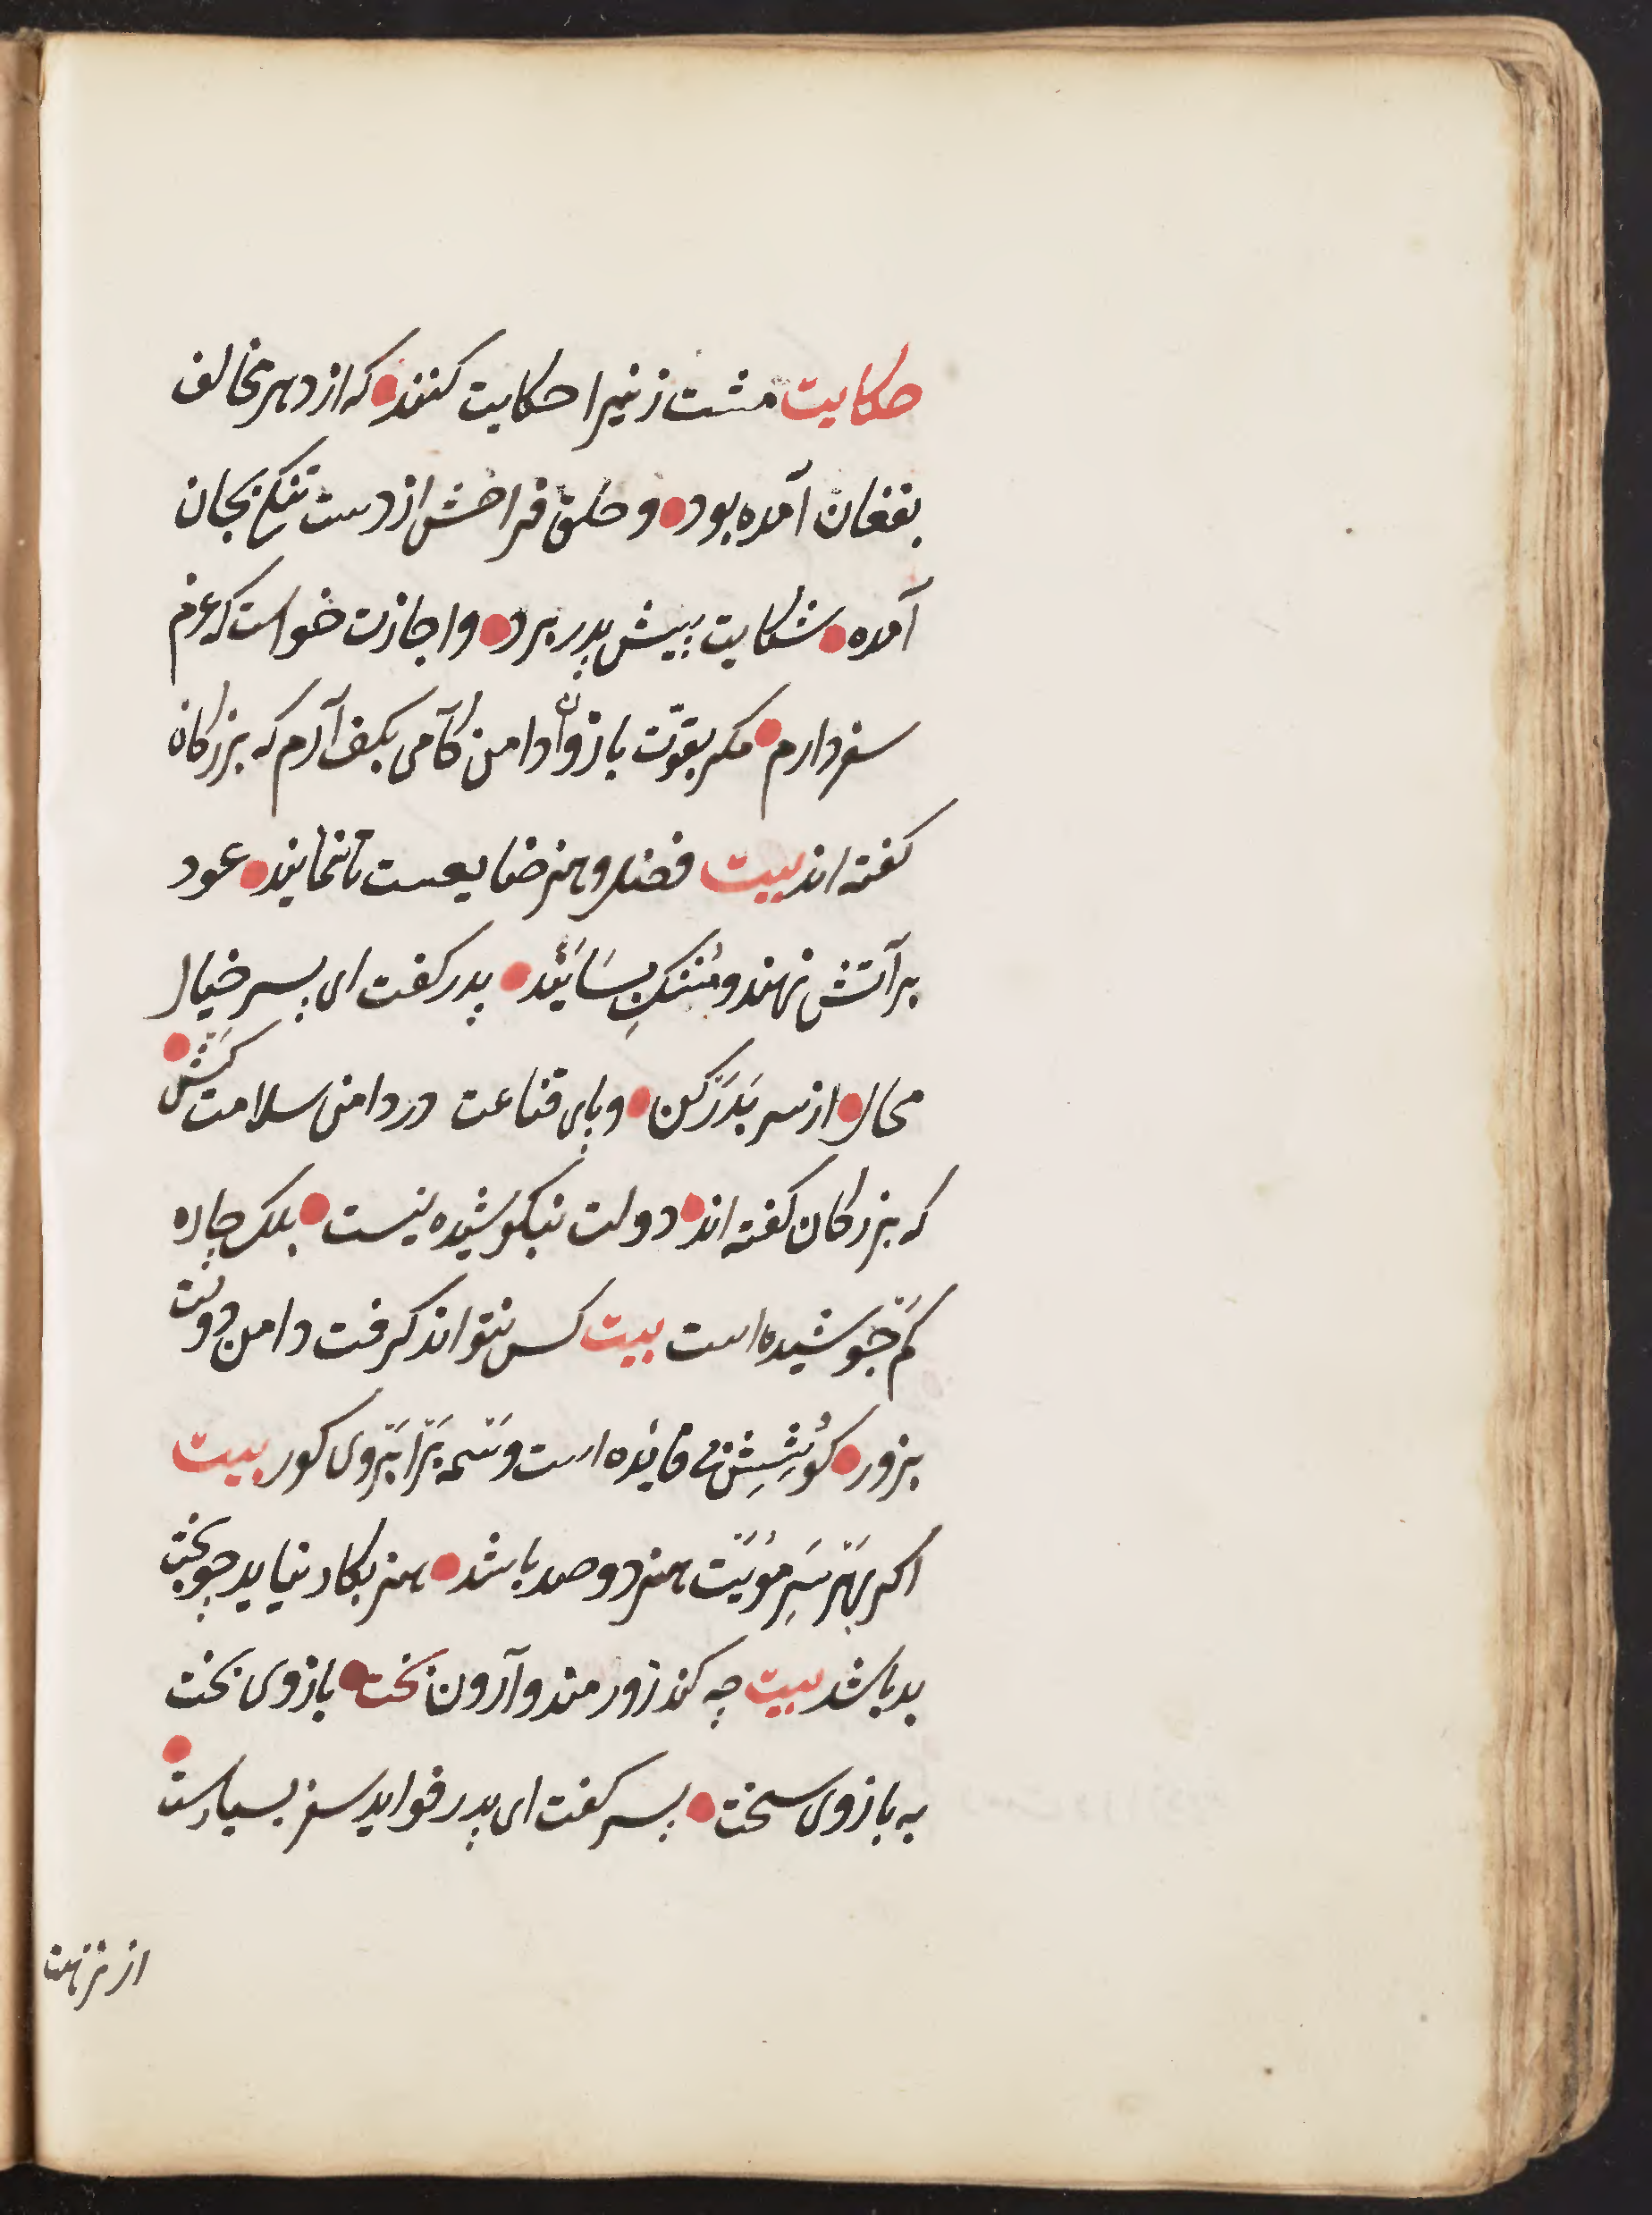 حکایت مشت زنیرا حکایت کنند که از دهر مخالف
بفغان آمده بود و حلق فراخش از دست تنک بجان
آمده شکایت پیش پدر برد و اجازت خواست که عزم
سفر دارم مکر بقوّت بازوان دامن کامی بکف آرم که بزرکان
کفته اند بیت فضل و هنر ضایعست تا ننمایند عود
بر آتش نهند و مُشک بِسَایَنْد پدر کفت ای پسر خیال
محال از سر بَدَرْ کن و پای قناعت در دامن سلامت کَشْ
که بزرکان کفته اند دولت نبکوشیده نیست بلکه چاره
کَمْ جوشیده است بیت کس نتواند کرفت دامن دولت
بزور کُوشِشِ بی فایده است وَسْمه بَرْ اَبْروی کور بیت
اکر بَهَرْ سَرِ مُویَتْ هنر دو صد باشد هنر بکار نیاید چو بخت
بد باشد بیت چه کند زورمند وآرون بخت بازوی بخت
به بازوی سخت پسر کفت ای پدر فواید سفر بسیارست
از نزهت